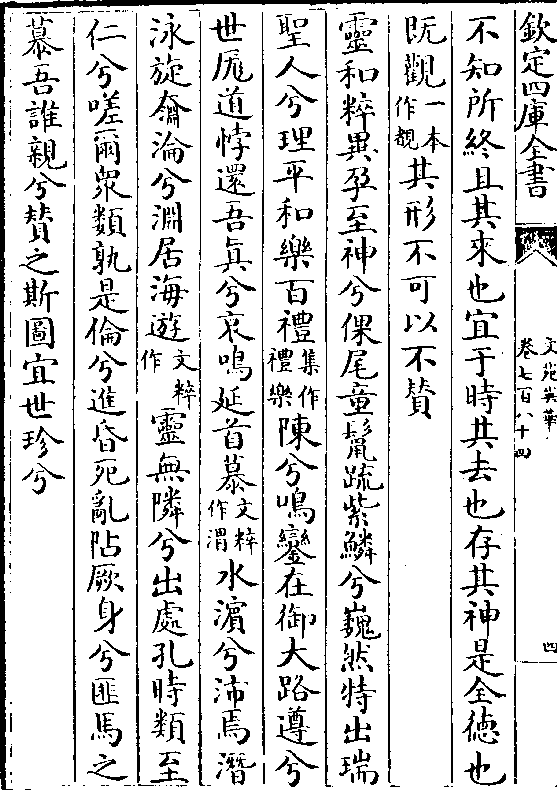 欽定四庫全書
文苑英華
卷七百八十四
四
不知所終且其來也宜于時其去也存其神是全德也
既觀一本作覩其形不可以不贊
靈和粹異孕至神兮倮尾童鬛疏紫鱗兮巍然特出瑞
聖人兮理平和樂百禮集作禮樂陳兮鳴鑾在御大路遵兮
世厖道悖還吾真兮哀鳴延首慕文粹作渭水濱兮沛焉潛
泳旋奫淪兮淵居海遊文粹作靈無隣兮出處孔時類至
仁兮嗟爾衆類孰是倫兮進昏死亂阽厥身兮匪馬之
慕吾誰親兮賛之斯圖宜世珍兮